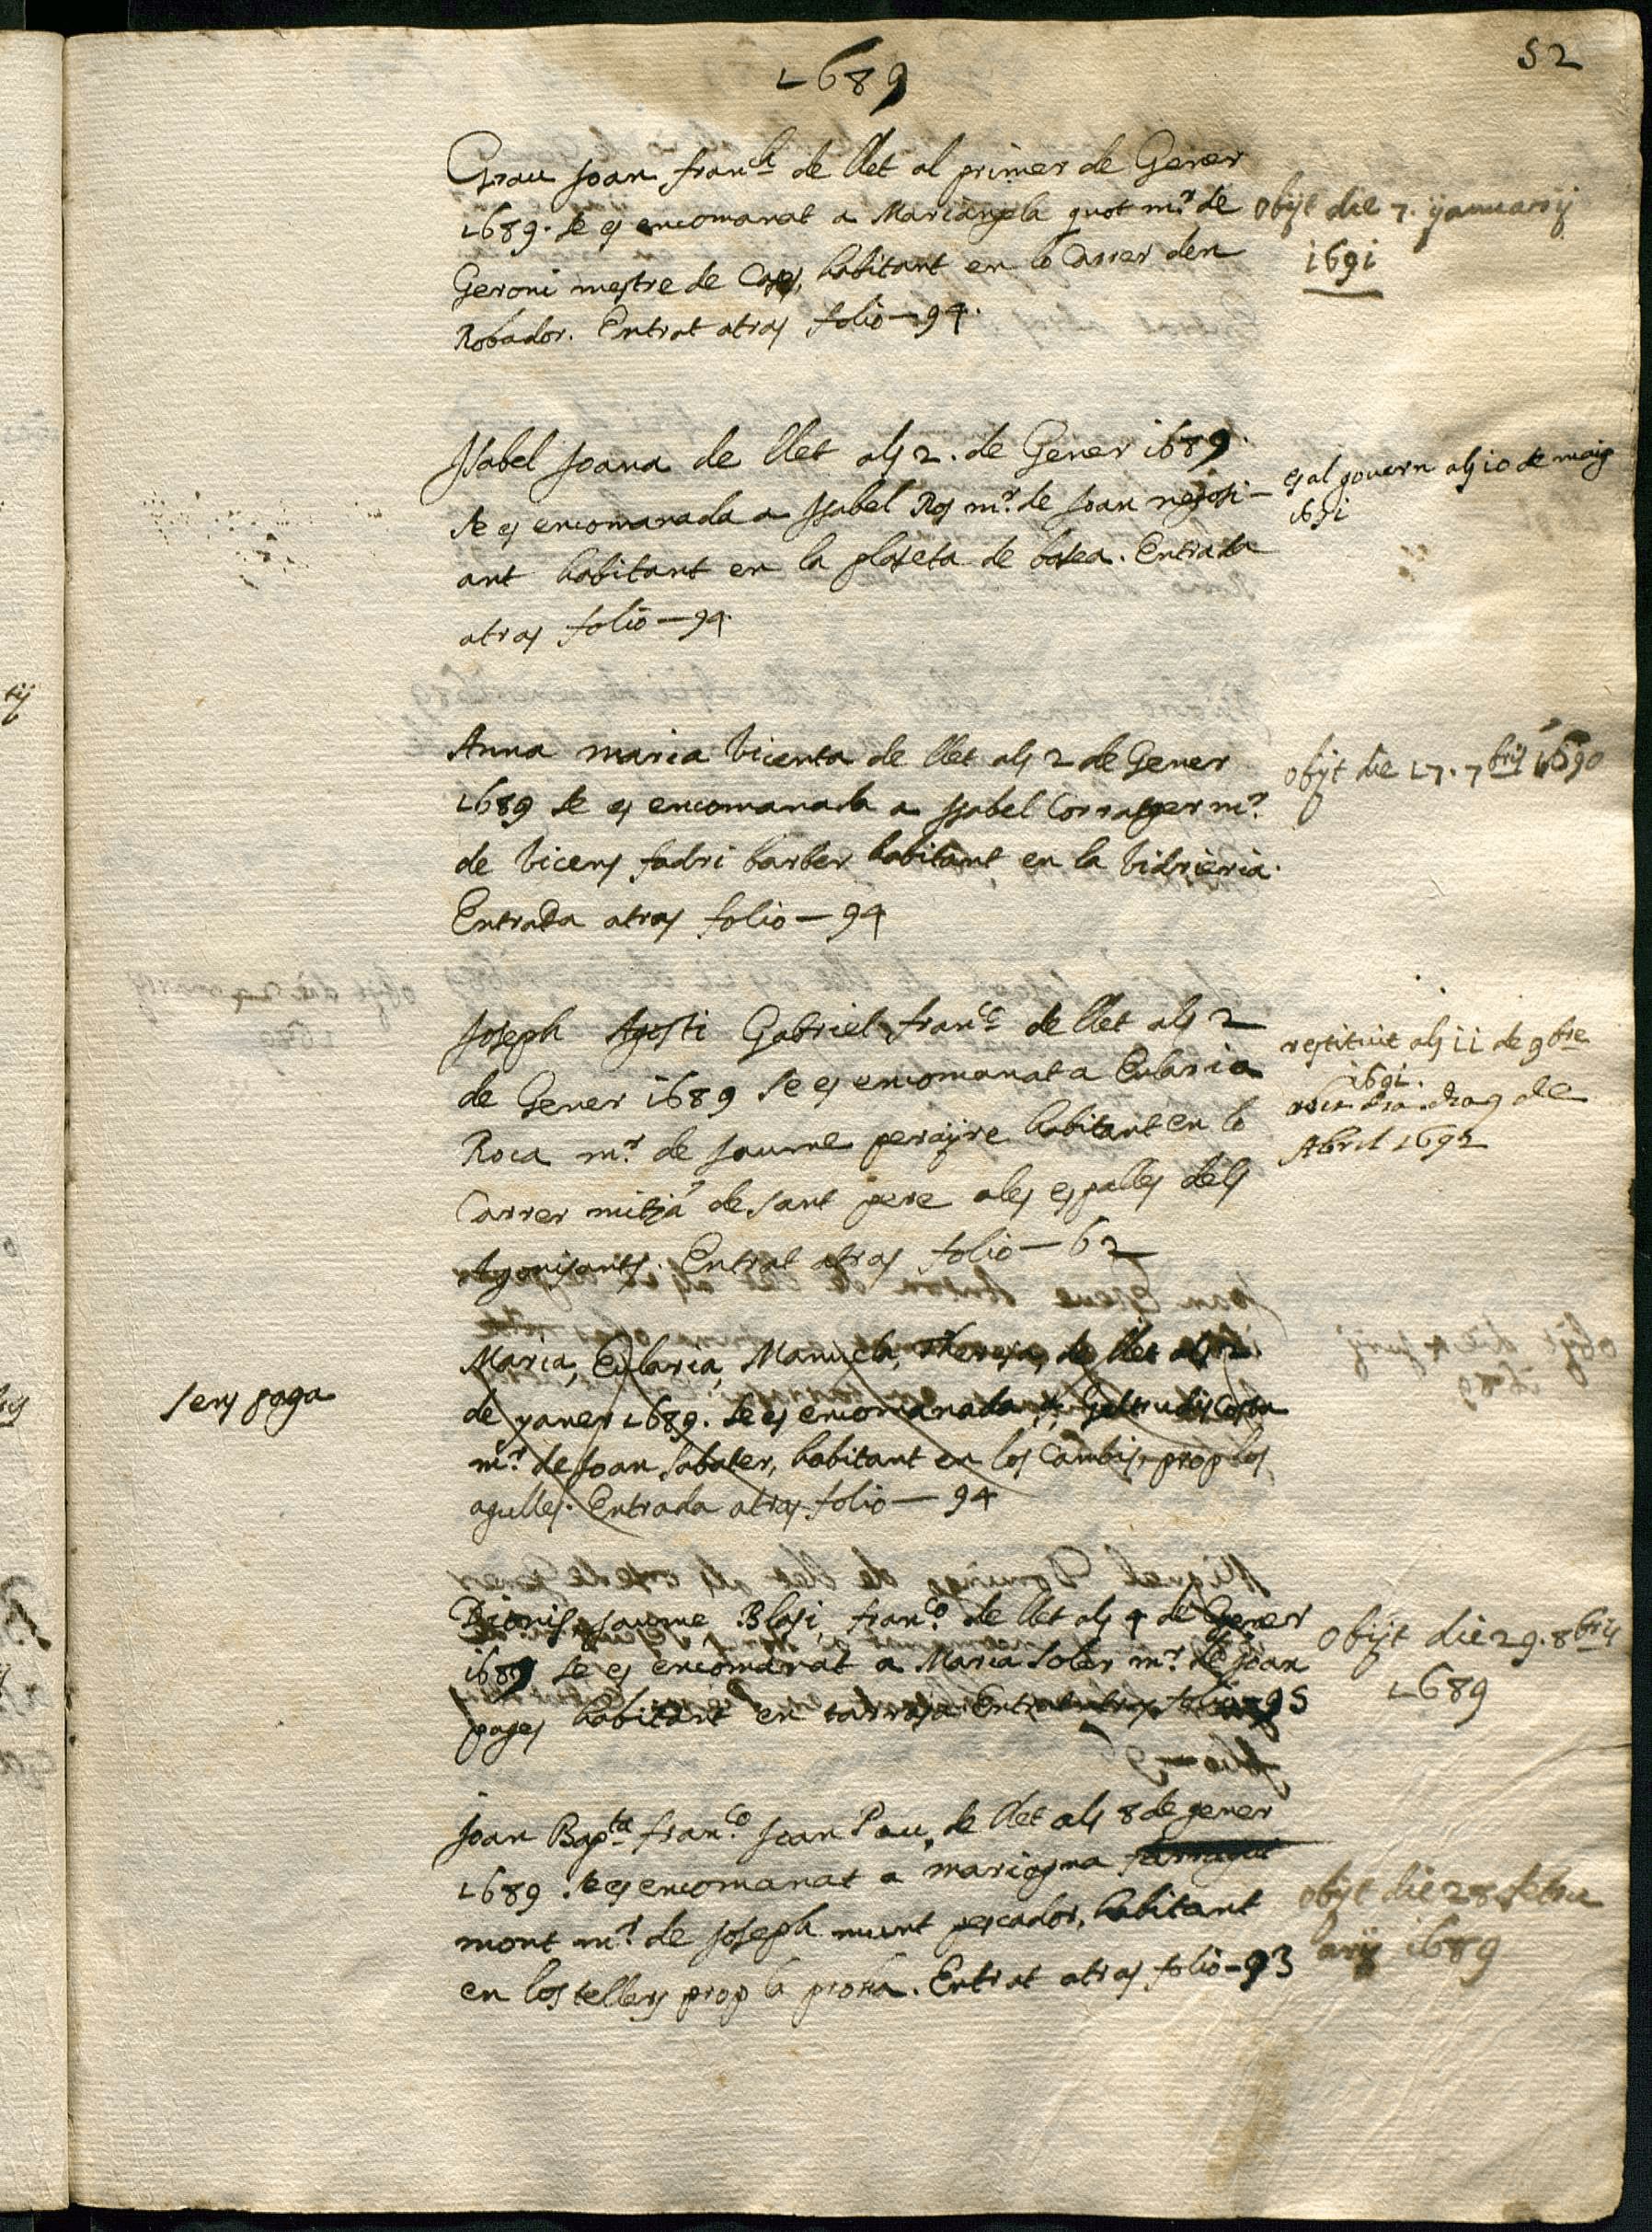 52
1689
Grau Joan fran.ch de llet al primer de Gener
1689. se es encomanat a Mariangela guot m.r de
Geroni mestre de Cases, habitant en lo Carrer den
Robador. Entrat atras folio — 94.
obijt die 7. ijanuarij
1691
Isabel Joana de llet als 2. de Gener 1689.
se es encomanada a Isabel Ros m.r de Joan negosi-
ant habitant en la plaseta de basea. Entrada
atras folio — 94.
es al govern als 10 de maig
1691
Anna maria Vicenta de llet als 2 de Gener
1689 se es encomanada a Isabel m.r
de Vicens fadri barber habitant en la Vidrieria.
Entrada atras folio — 94
obijt die 17. 7bris 1690
Joseph Agosti Gabriel fran.co de llet als 2
de Gener 1689 se es encomanat a Eularia
Roca m.r de Jaume perayre habitant en lo
Carrer mitjá de sant pere ales espalles dels
Agonisants. Entrat atras folio — 62
restituit als 11 de 9bre
1691.
de
Abril 1692
sens paga
Maria, Eularia, Manuela, Theresa, de llet als 2
de yaner 1689. se es encomanada a Geltrudis Costa
m.r de Joan Sabater, habitant en los Cambis, prop los
agulles. Entrada atras folio — 94
Dionis, Jaume Blasi, fran.co de llet als 4 de Gener
1689 se es encomanat a Maria Soler m.r de Joan
pages habitant en tarrasa Entrat atras folio — 95
obijt die 29. 8bris
1689
Joan Bap.ta fran.co Joan Pau, de llet als 8 de gener
1689 se es encomanat a mariagna
mont m.r de Joseph munt pescador, habitant
en los tellers prop la . Entrat atras folio — 93
obijt die 28 febru
arij 1689